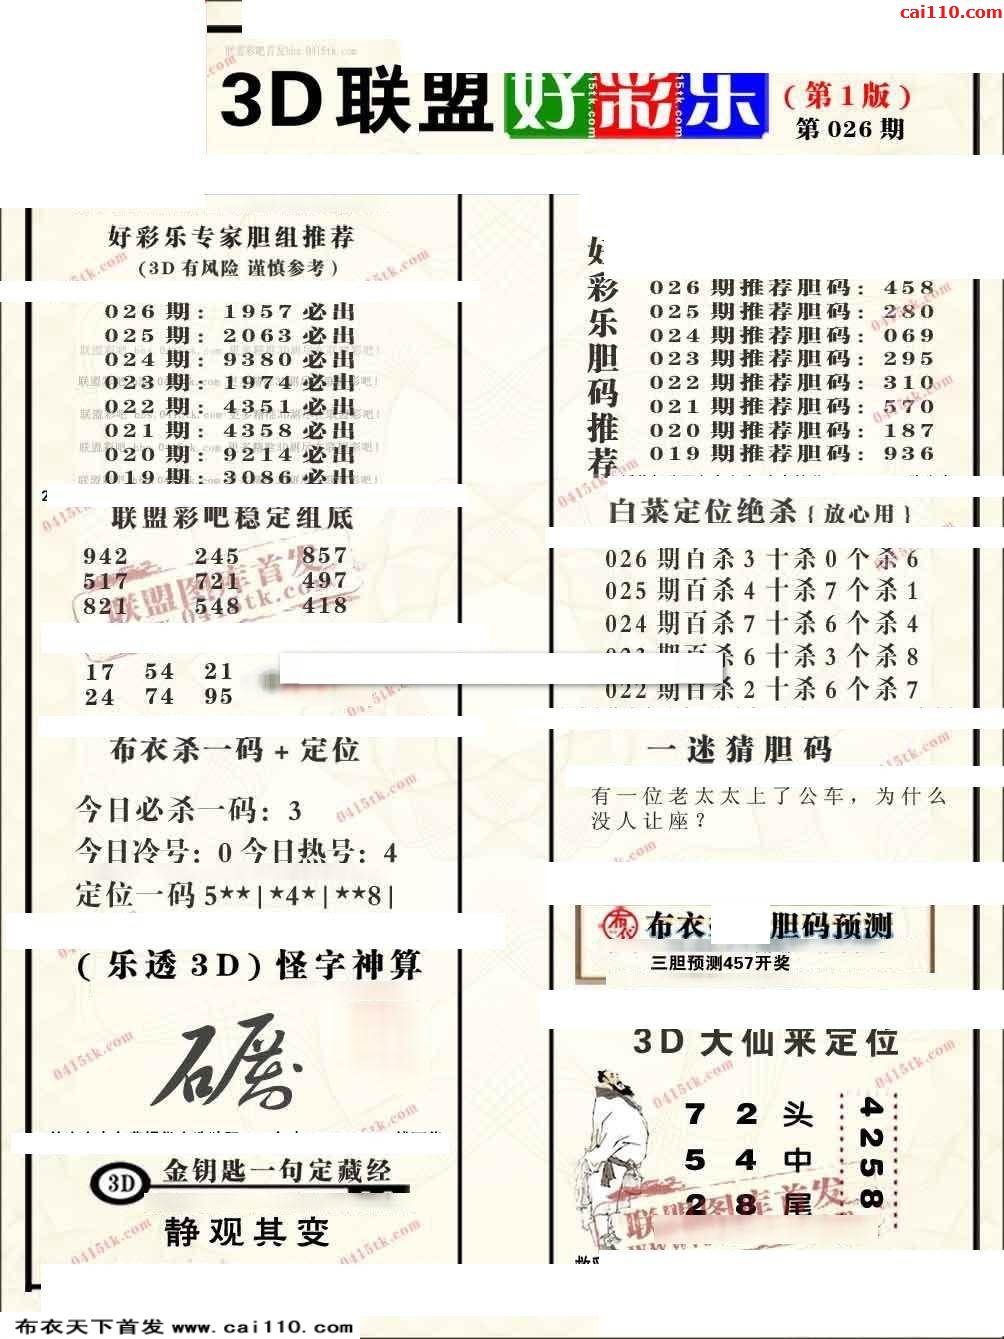 cai110.com
3D联盟好彩乐
(第1版)
第026期
好彩乐专家胆组推荐
(3D有风险 谨慎参考)
026期: 1957必出
025期: 2063必出
024期: 9380必出
023期: 1974必出
022期: 4351必出
021期: 4358必出
020期: 9214必出
019期: 3086必出
联盟彩吧稳定组底
942 245 857
517 721 497
821 548 418
17 54 21
24 74 95
布衣杀一码+定位
今日必杀一码: 3
今日冷号: 0 今日热号: 4
定位一码 5**|*4*|**8|
(乐透3D)怪字神算
3D 金钥匙一句定藏经
静观其变
好彩乐胆码推荐
026期推荐胆码: 458
025期推荐胆码: 280
024期推荐胆码: 069
023期推荐胆码: 295
022期推荐胆码: 310
021期推荐胆码: 570
020期推荐胆码: 187
019期推荐胆码: 936
白菜定位绝杀{放心用}
026期百杀3十杀0个杀6
025期百杀4十杀7个杀1
024期百杀7十杀6个杀4
023期百杀6十杀3个杀8
022期百杀2十杀6个杀7
一迷猜胆码
有一位老太太上了公车，为什么
没人让座？
布衣 胆码预测
三胆预测457开奖
3D大仙来定位
7 2 头
5 4 中
2 8 尾
4258
联盟图库首发
0415tk.com
布衣天下首发 www.cai110.com